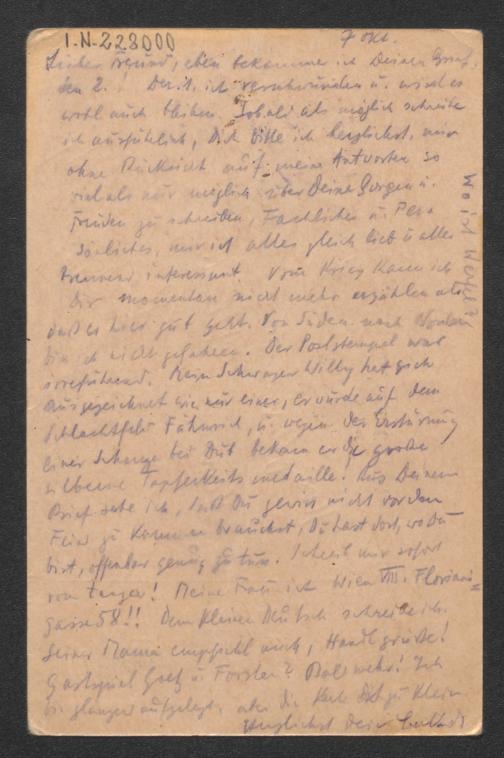 I.N. 223000
7 Okt.
Lieber Freund, eben bekomme ich Deinen Brief
den 2. Der 1. ist verschwunden u. wird es
wohl auch bleiben. Sobald als möglich schreibe
ich ausführlich, Dich bitte ich herzlichst, nur
ohne Rücksicht auf meine Antworten so
viel als nur möglich über Deine Sorgen u.
Freuden zu schreiben, Fachliches u Persönliches
mir ist alles gleich lieb u alles
brennend interessant. Vom Krieg kann ich
Dir momentan nicht mehr erzählen als
daß es hier gut geht. Von Süden nach Norden
bin ich nicht gefahren. Der Poststempel war
irreführend. Mein Schwager Willy hat sich
ausgezeichnet wie nur einer, er wurde auf dem
Schlachtfeld Fähnrich, u. wegen der Erstürmung
einer Schanze bei bekam er die große
silberne Tapferkeitsmedaille. Aus Deinem
Brief sehe ich, daß Du gewiss nicht vor den
Feind zu kommen brauchst, Du hast dort, wo Du
bist, offenbar genug zu tun. Schreib mir sofort
von Deiner Frau ist Wien VIII. Florianigasse
58!! Dem kleinen Deutsch schreibe ich.
Seiner Mama empfiehl mich, Handl grüsse!
Gastspiel Goetz u Forster? Bald mehr! Ich
bin glänzend aufgelegt, aber die Karte ist zu klein
Herzlichst Dein
Wo ist Werfel?